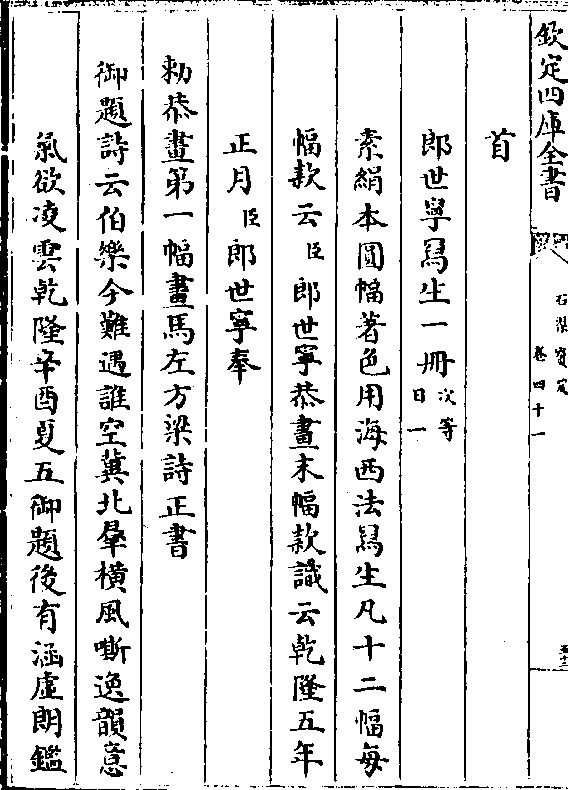 欽定四庫全書
石渠寶笈
卷四十一
首
郎世寧寫生一冊次等日一
素絹本圓幅著色用海西法寫生凡十二幅每
幅款云臣郎世寧恭畫末幅款識云乾隆五年
正月臣郎世寧奉
勅恭畫第一幅畫馬左方梁詩正書
御題詩云伯樂今難遇誰空冀北羣橫風嘶逸韻意
氣欲凌雲乾隆辛酉夏五御題後有涵虛朗鑑